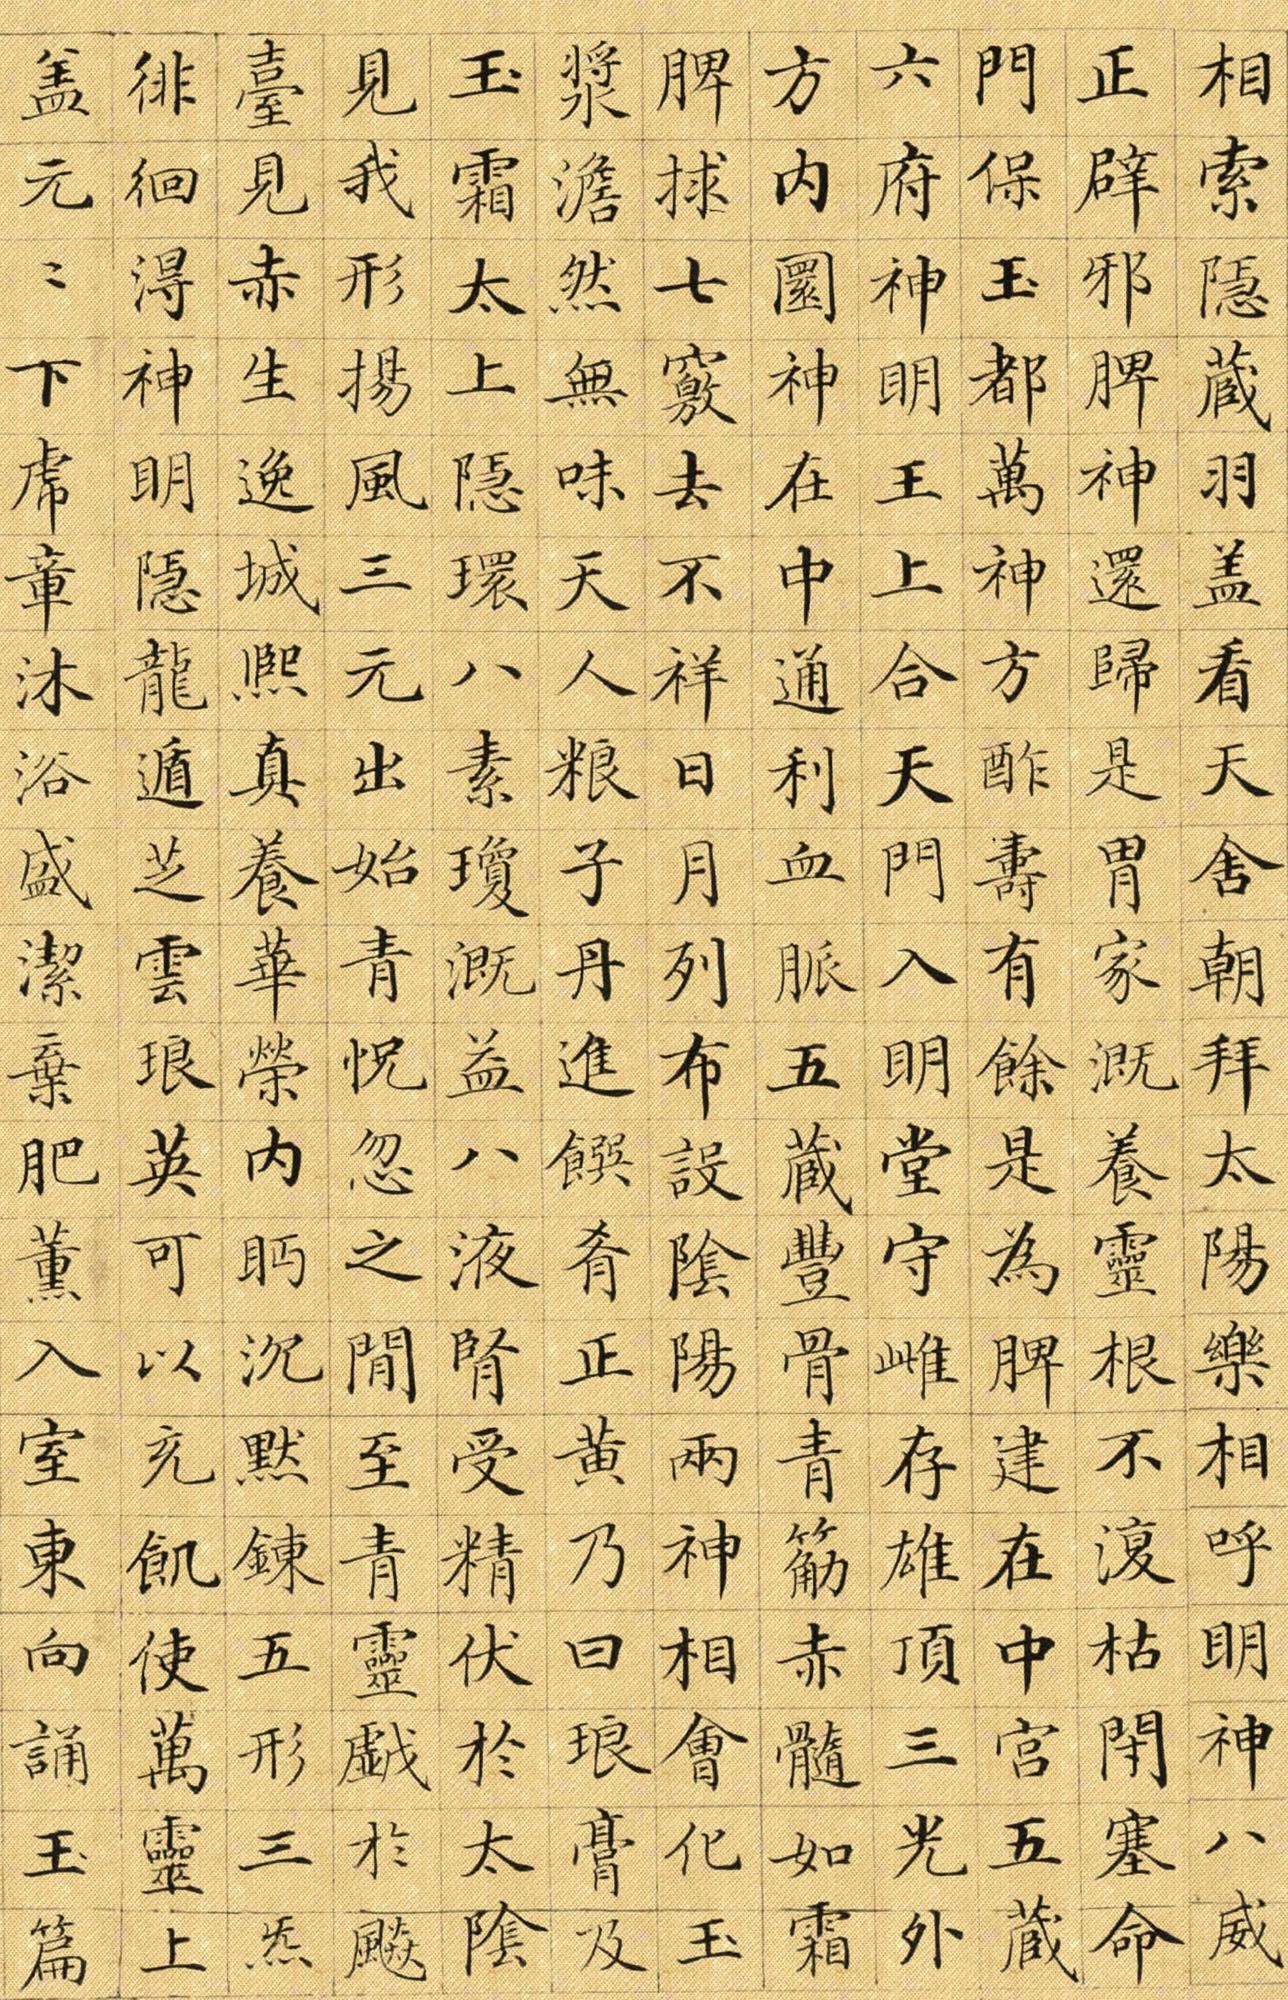 相索隱蔵羽盖看天舍朝拜太陽樂相呼明神八威
正辟邪脾神還歸是胃家溉養靈根不復枯閇塞命
門保玉都萬神方酢壽有餘是為脾建在中宫五蔵
六府神明王上合天門入明堂守雌存雄頂三光外
方内圎神在中通利血脈五蔵豐骨青筋赤髓如霜
脾捄七竅去不祥日月列布設陰陽兩神相會化玉
漿澹然無味天人粮子丹進饌肴正黃乃曰琅膏及
玉霜太上隱環八素瓊溉益八液腎受精伏於太陰
見我形揚風三元出始青怳忽之閒至青靈戱於飈
臺見赤生逸城熙真養華榮内眄沉默鍊五形三炁
徘徊淂神明隱龍遁芝雲琅英可以充飢使萬靈上
盖元〻下虎章沐浴盛潔棄肥薰入室東向誦玉篇